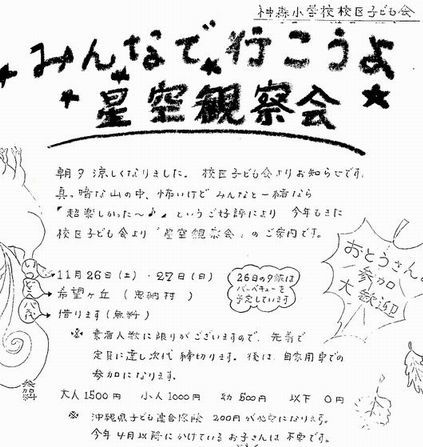 神森小学校校区子ども会
みんなで行こうよ
星空観察会
朝夕涼しくなりました。校区子ども会よりお知らせです。
真、暗な山の中、怖いけどみんなと一緒なら
「超楽しかった〜♪」というご好評により 今年もまた
校区子ども会より「星空観察会」のご案内です。
おとうさんの
参加
大歓迎
11月26日(土)・27日(日)
希望ヶ丘 (恩納村)
借ります(無料)
26日の夕飯は
バーベキューを
予定しています
※ 乗車人数に限りがございますので、先着で
定員に達し次第 締切ります。後は、自家用車での
参加になります。
参加料
大人1500円 小人1000円 幼500円 以下 0円
※ 沖縄県子ども連合保険 200円が必要になります。
今年4月以降にかけているお子さんは不要です。